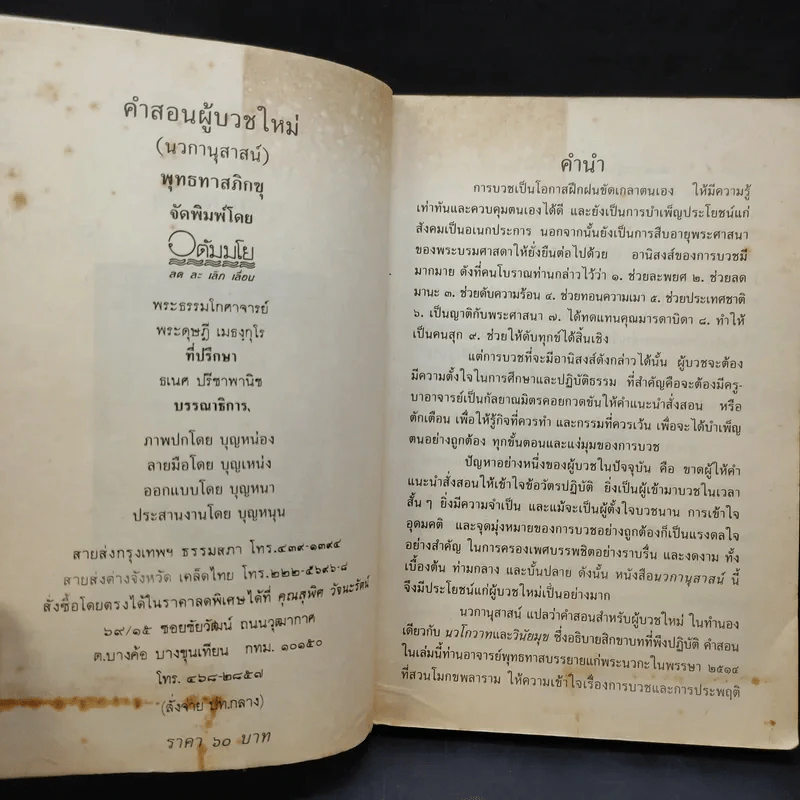 คำสอนผู้บวชใหม่
(นวกานุสาสน์)
พุทธทาสภิกขุ
จัดพิมพ์โดย
อตัมมโย
ลด ละ เลิก เลื่อน
พระธรรมโกศาจารย์
พระดุษฎี เมธงฺกุโร
ที่ปรึกษา
ธเนศ ปรีชาพานิช
บรรณาธิการ
ภาพปกโดย บุญหน่อง
ลายมือโดย บุญเหน่ง
ออกแบบโดย บุญหนา
ประสานงานโดย บุญหนุน
สายส่งกรุงเทพฯ ธรรมสภา โทร.๔๓๙-๑๓๙๔
สายส่งต่างจังหวัด เคล็ดไทย โทร.๒๒๒-๕๖๙๖-๘
สั่งซื้อโดยตรงได้ในราคาลดพิเศษได้ที่ คุณสุพิศ วัจนะรัตน์
๖๙/๑๕ ซอยชัยวัฒน์ ถนนวุฒากาศ
ต.บางค้อ บางขุนเทียน กทม. ๑๐๑๕๐
โทร. ๔๖๘-๒๘๕๗
(สั่งจ่าย ปท.กลาง)
ราคา ๖๐ บาท
คำนำ
การบวชเป็นโอกาสฝึกฝนขัดเกลาตนเอง ให้มีความรู้
เท่าทันและควบคุมตนเองได้ดี และยังเป็นการบำเพ็ญประโยชน์แก่
สังคมเป็นอเนกประการ นอกจากนั้นยังเป็นการสืบอายุพระศาสนา
ของพระบรมศาสดาให้ยั่งยืนต่อไปด้วย อานิสงส์ของการบวชมี
มากมาย ดังที่คนโบราณท่านกล่าวไว้ว่า ๑. ช่วยละพยศ ๒. ช่วยลด
มานะ ๓. ช่วยดับความร้อน ๔. ช่วยทอนความเมา ๕. ช่วยประเทศชาติ
๖. เป็นญาติกับพระศาสนา ๗. ได้ทดแทนคุณมารดาบิดา ๘. ทำให้
เป็นคนสุก ๙. ช่วยให้ดับทุกข์ได้สิ้นเชิง
แต่การบวชที่จะมีอานิสงส์ดังกล่าวได้นั้น ผู้บวชจะต้อง
มีความตั้งใจในการศึกษาและปฏิบัติธรรม ที่สำคัญคือจะต้องมีครู-
บาอาจารย์เป็นกัลยาณมิตรคอยกวดขันให้คำแนะนำสั่งสอน หรือ
ตักเตือน เพื่อให้รู้กิจที่ควรทำ และกรรมที่ควรเว้น เพื่อจะได้บำเพ็ญ
ตนอย่างถูกต้อง ทุกขั้นตอนและแง่มุมของการบวช
ปัญหาอย่างหนึ่งของผู้บวชในปัจจุบัน คือ ขาดผู้ให้คำ
แนะนำสั่งสอนให้เข้าใจข้อวัตรปฏิบัติ ยิ่งเป็นผู้เข้ามาบวชในเวลา
สั้น ๆ ยิ่งมีความจำเป็น และแม้จะเป็นผู้ตั้งใจบวชนาน การเข้าใจ
อุดมคติ และจุดมุ่งหมายของการบวชอย่างถูกต้องก็เป็นแรงดลใจ
อย่างสำคัญ ในการครองเพศบรรพชิตอย่างราบรื่น และงดงาม ทั้ง
เบื้องต้น ท่ามกลาง และบั้นปลาย ดังนั้น หนังสือนวกานุสาสน์ นี้
จึงมีประโยชน์แก่ผู้บวชใหม่เป็นอย่างมาก
นวกานุสาสน์ แปลว่าคำสอนสำหรับผู้บวชใหม่ ในทำนอง
เดียวกับ นวโกวาทและวินัยมุข ซึ่งอธิบายสิกขาบทที่พึงปฏิบัติ คำสอน
ในเล่มนี้ท่านอาจารย์พุทธทาสบรรยายแก่พระนวกะในพรรษา ๒๕๑๔
ที่สวนโมกขพลาราม ให้ความเข้าใจเรื่องการบวชและการประพฤติ